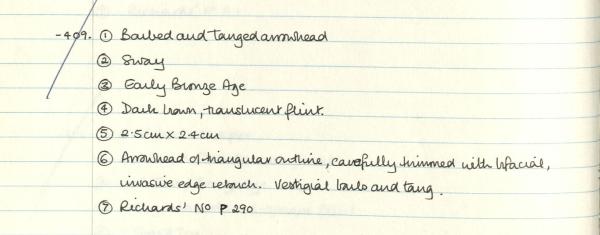 -409. ① Barbed and tanged arrowhead
② Sway
③ Early Bronze Age
④ Dark brown, translucent flint.
⑤ 2.5cm x 2.4cm
⑥ Arrowhead of triangular outline, carefully trimmed with bifacial,
invasive edge retouch. Vestigial barbs and tang.
⑦ Richards' No P 290